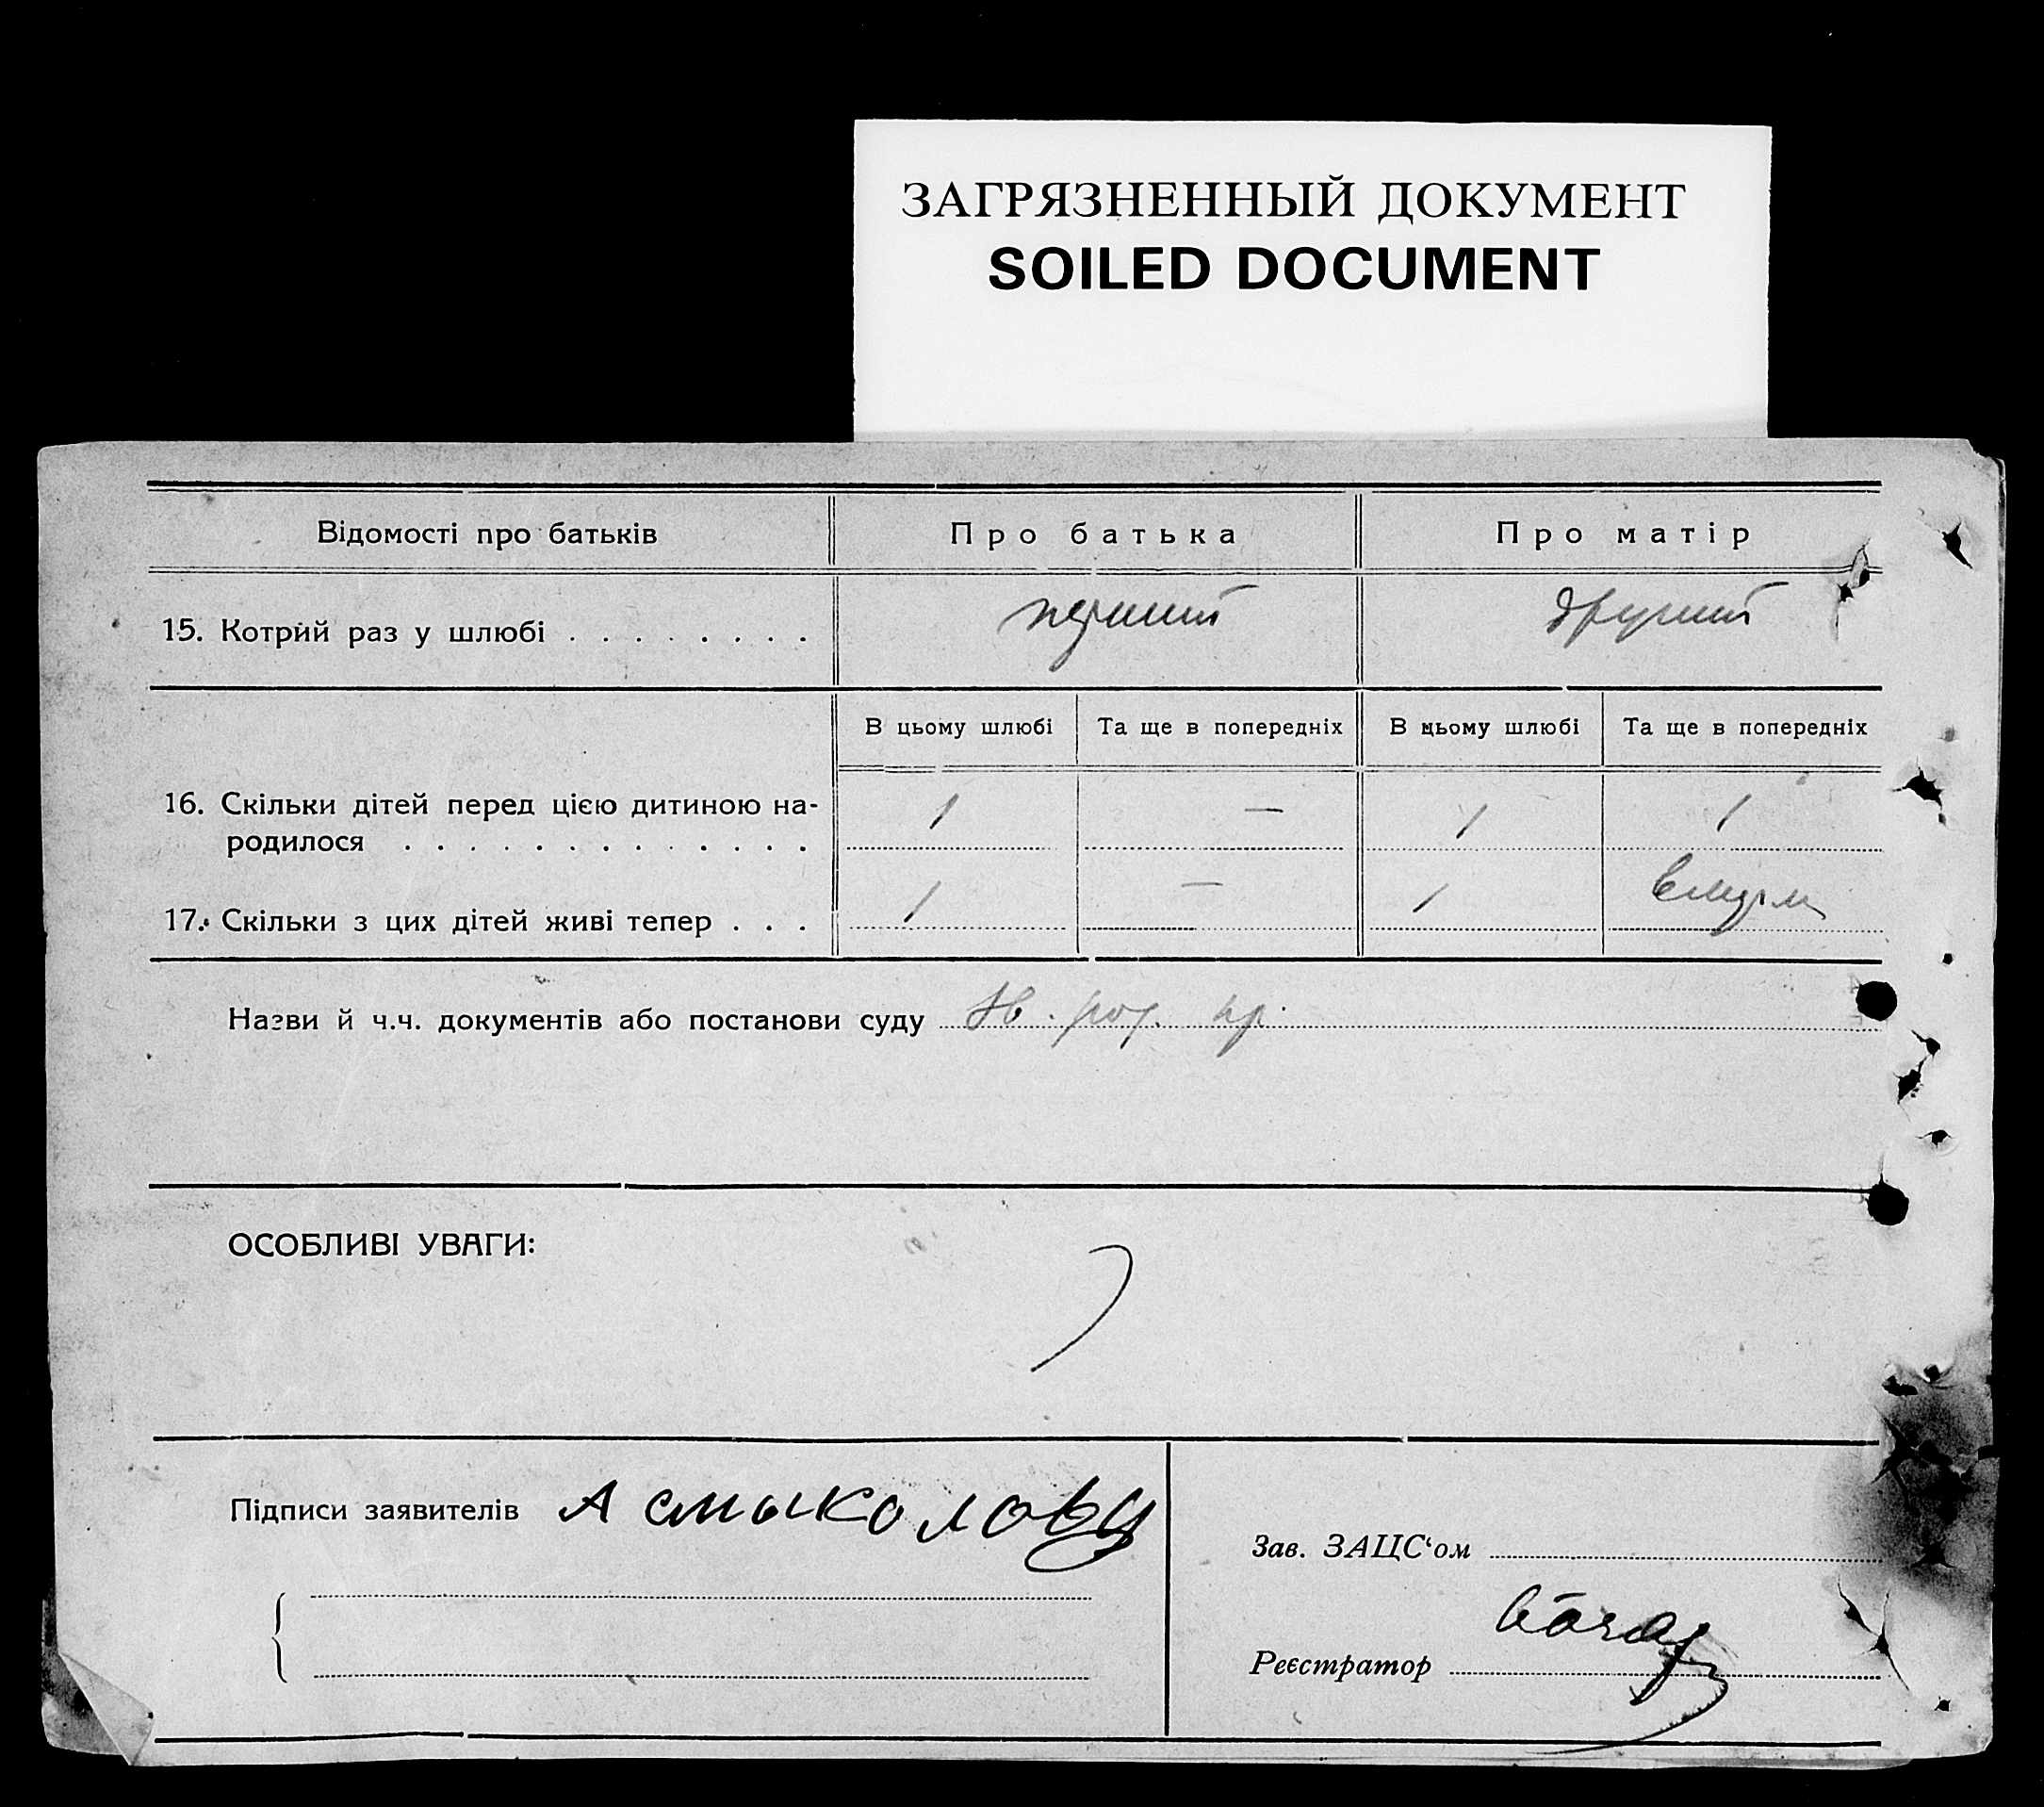 ЗАГРЯЗНЕННЫЙ ДОКУМЕНТ
SOILED DOCUMENT
Відомості про батьків
Про батька
Про матір
15. Котрий раз у шлюбі . . . . . . . .
перший
другий
В цьому шлюбі
Та ще в попередніх
В цьому шлюбі
Та ще в попередніх
16. Скільки дітей перед цією дитиною на-
родилося . . . . . . . . . . . . .
1
—
1
1
17. Скільки з цих дітей живі тепер . . .
1
—
1
Назви й ч.ч. документів або постанови суду
ОСОБЛИВІ УВАГИ:
Підписи заявителів А
Зав. ЗАЦС‘ом
Реєстратор